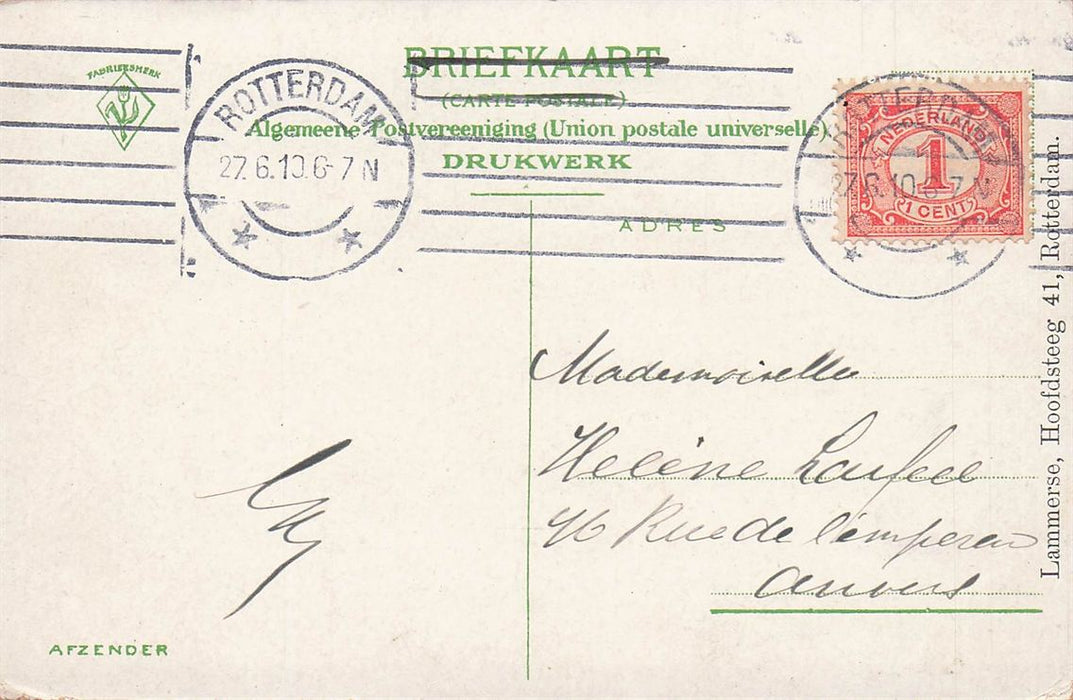 BRIEFKAART
(CARTE POSTALE)
Algemeene Postvereeniging (Union postale universelle)
DRUKWERK
FABRIEKSMERK
ROTTERDAM
27.6.10.6-7 N
ROTTERDAM
27.6.10.6-7 N
NEDERLAND
1
1 CENT
ADRES
Mademoiselle
Helène
46 Rue de l'empereur
Anvers
AFZENDER
Lammerse, Hoofdsteeg 41, Rotterdam.